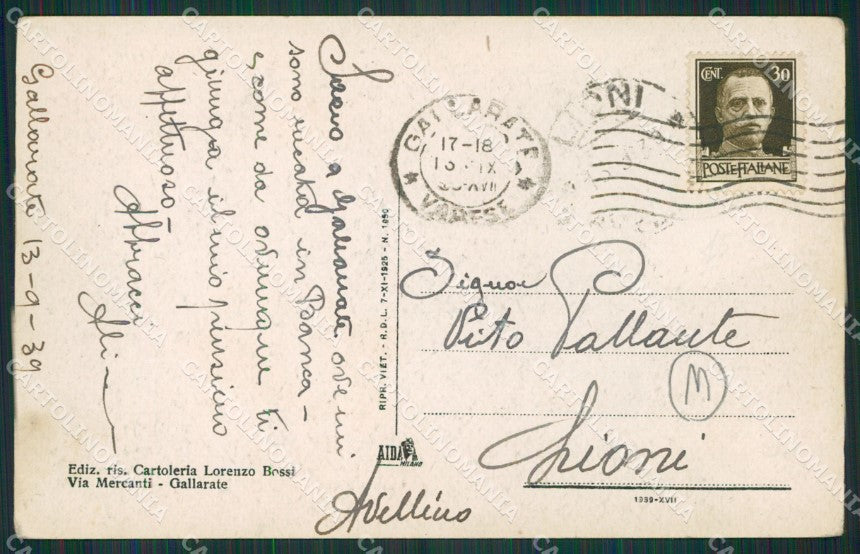 Gallarate 13-9-39
Sono a Gallarate ove mi
sono recata in Banca -
e come da ovunque ti
giunga il mio pensiero
affettuoso -
Abbracci
CENT. 30
POSTE ITALIANE
GALLARATE
17-18
IX
XVII
VARESE
LIONI
Signor
Vito Pallante
M
Lioni
Avellino
RIPR. VIET. - R.D.L. 7-XI-1925 - N. 1950
AIDA
MILANO
Ediz. ris. Cartoleria Lorenzo Bossi
Via Mercanti - Gallarate
1939-XVII
CARTOLINOMANIA